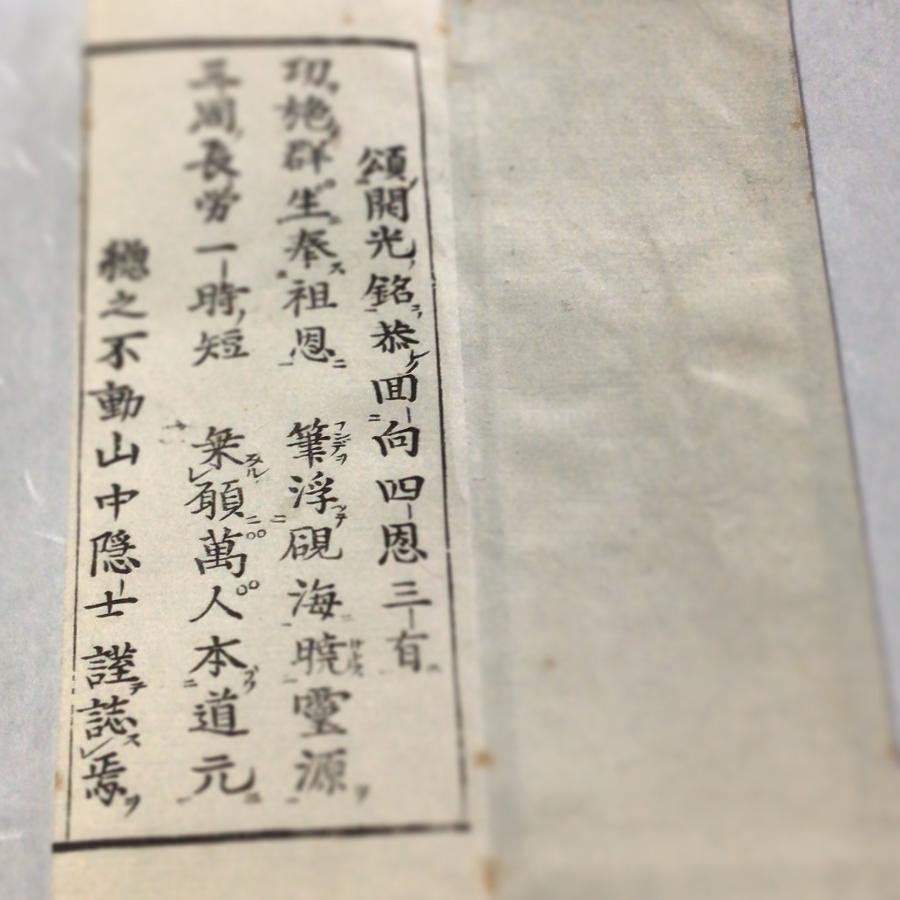 頌開光銘恭囬向四恩三有
功絶群生奉祖恩 筆浮硯海曉靈源
三周長劳一時短 無願萬人本道元
總之不動山中隠士 謹誌焉